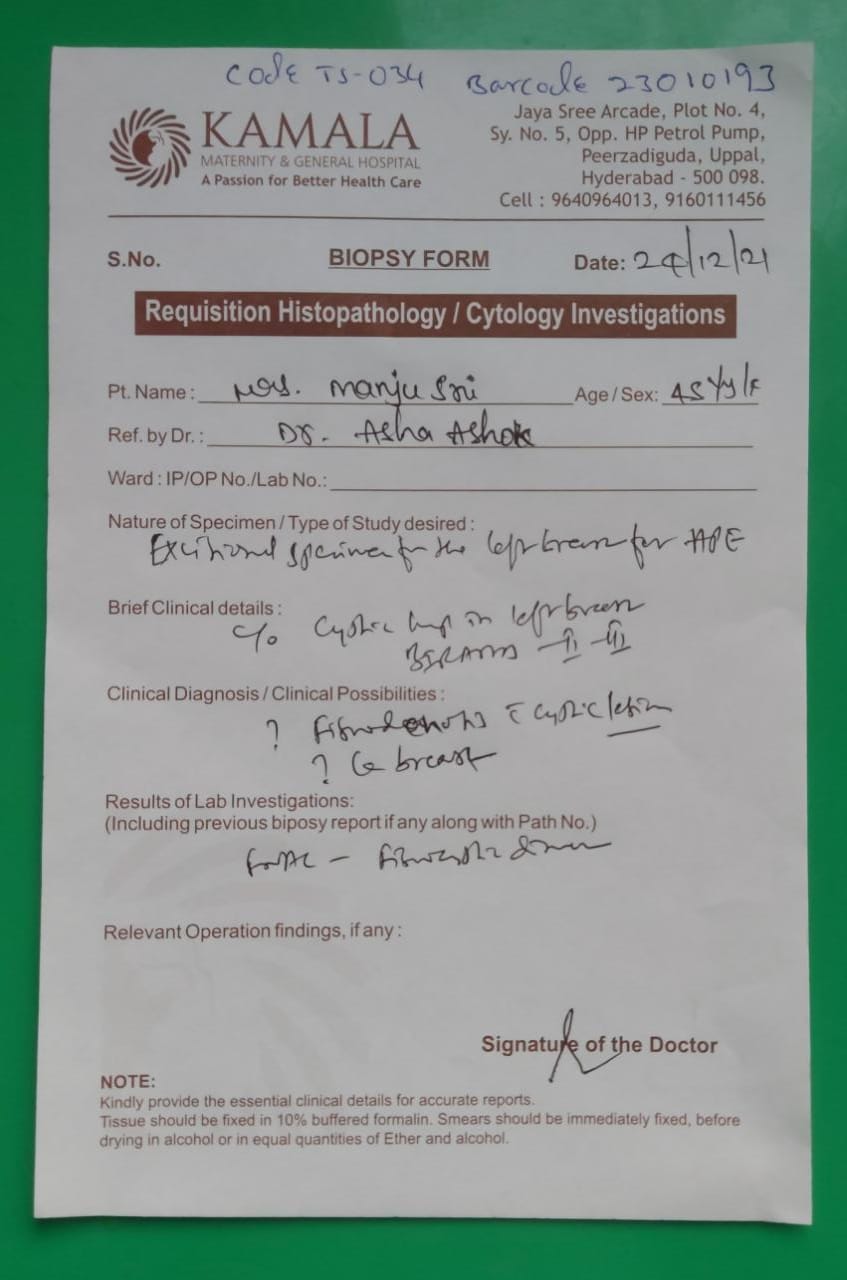 Code TS-034 Barcode 23010193
KAMALA
MATERNITY & GENERAL HOSPITAL
A Passion for Better Health Care
Jaya Sree Arcade, Plot No. 4,
Sy. No. 5, Opp. HP Petrol Pump,
Peerzadiguda, Uppal,
Hyderabad - 500 098.
Cell : 9640964013, 9160111456
S.No. BIOPSY FORM Date: 24/12/21
Requisition Histopathology / Cytology Investigations
Pt. Name : Mrs. Manju Sri Age / Sex: 45 Yrs/F
Ref. by Dr. : Dr. Asha Ashok
Ward : IP/OP No./Lab No.:
Nature of Specimen / Type of Study desired :
Excisional specimen for the left breast for HPE
Brief Clinical details :
c/o Cystic lump in left breast
BIRADS II-III
Clinical Diagnosis / Clinical Possibilities :
? c̄ cystic lesion
? Ca breast
Results of Lab Investigations:
(Including previous biposy report if any along with Path No.)
FNAC - Fibrocystic disease
Relevant Operation findings, if any :
Signature of the Doctor
NOTE:
Kindly provide the essential clinical details for accurate reports.
Tissue should be fixed in 10% buffered formalin. Smears should be immediately fixed, before
drying in alcohol or in equal quantities of Ether and alcohol.